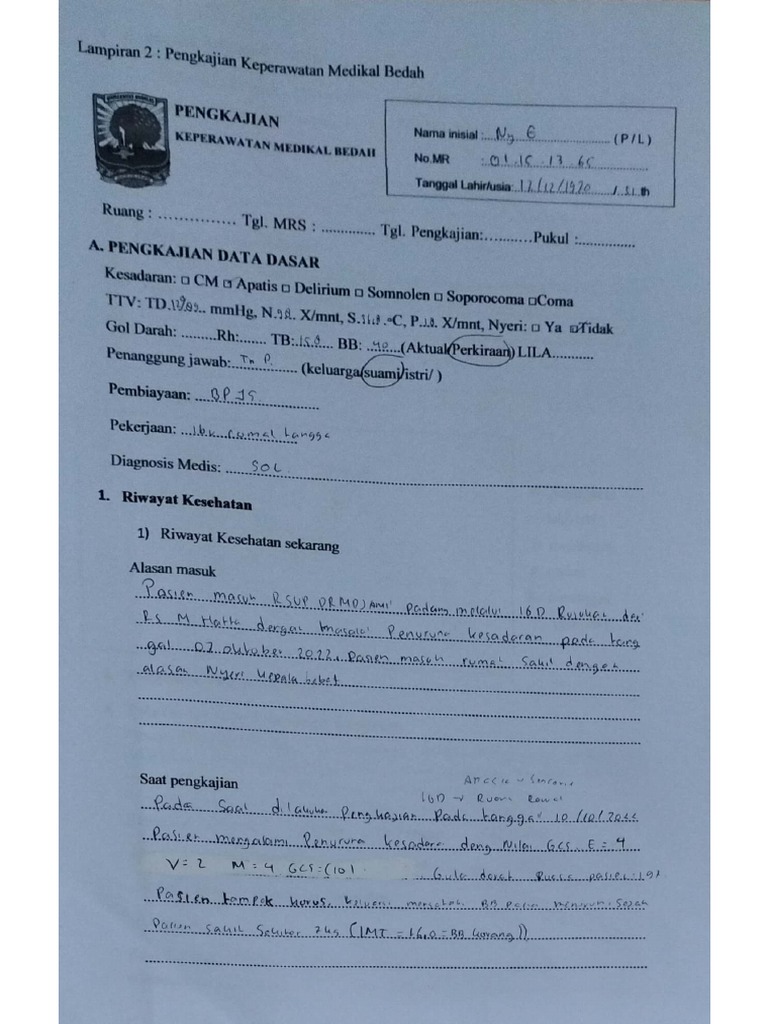 Lampiran 2 : Pengkajian Keperawatan Medikal Bedah
PENGKAJIAN
KEPERAWATAN MEDIKAL BEDAH
Nama inisial : Ny E (P/L)
No.MR : 01.15.13.65
Tanggal Lahir/usia: 12/12/1970 / 51 th
Ruang : ............... Tgl. MRS : ............. Tgl. Pengkajian:..........Pukul :..............
A. PENGKAJIAN DATA DASAR
Kesadaran: □ CM ☑ Apatis □ Delirium □ Somnolen □ Soporocoma □Coma
TTV: TD. mmHg, N. X/mnt, S. °C, P. X/mnt, Nyeri: □ Ya ☑Tidak
Gol Darah: ........Rh:...... TB: 158 BB: 40 (Aktual/Perkiraan) LILA...........
Penanggung jawab: Tn P. (keluarga/suami/istri/ )
Pembiayaan: BPJS
Pekerjaan: Ibu rumah tangga
Diagnosis Medis: SOL
1. Riwayat Kesehatan
1) Riwayat Kesehatan sekarang
Alasan masuk
Pasien masuk RSUP DR MDjamil padang melalui IGD Rujukan dari
RS M Hatta dengan masalah Penuruna kesadaran pada tang
gal 02 oktober 2022. Pasien masuk rumah sakit dengan
alasan Nyeri kepala hebat
Saat pengkajian
IGD → Ruang Rawat
Pada saat dilakukan Pengkajian Pada tanggal 10/10/2022
Pasien mengalami Penuruna kesadara deng Nilai GCS. E = 4
V = 2 M = 4 GCS = (10) Gula darah Puasa pasien
Pasien tampak kurus, keluarga mengatakan BB pasien menurun sejak
Pasien sakit sekitar 7 kg (IMT = 16,0 = BB kurang)